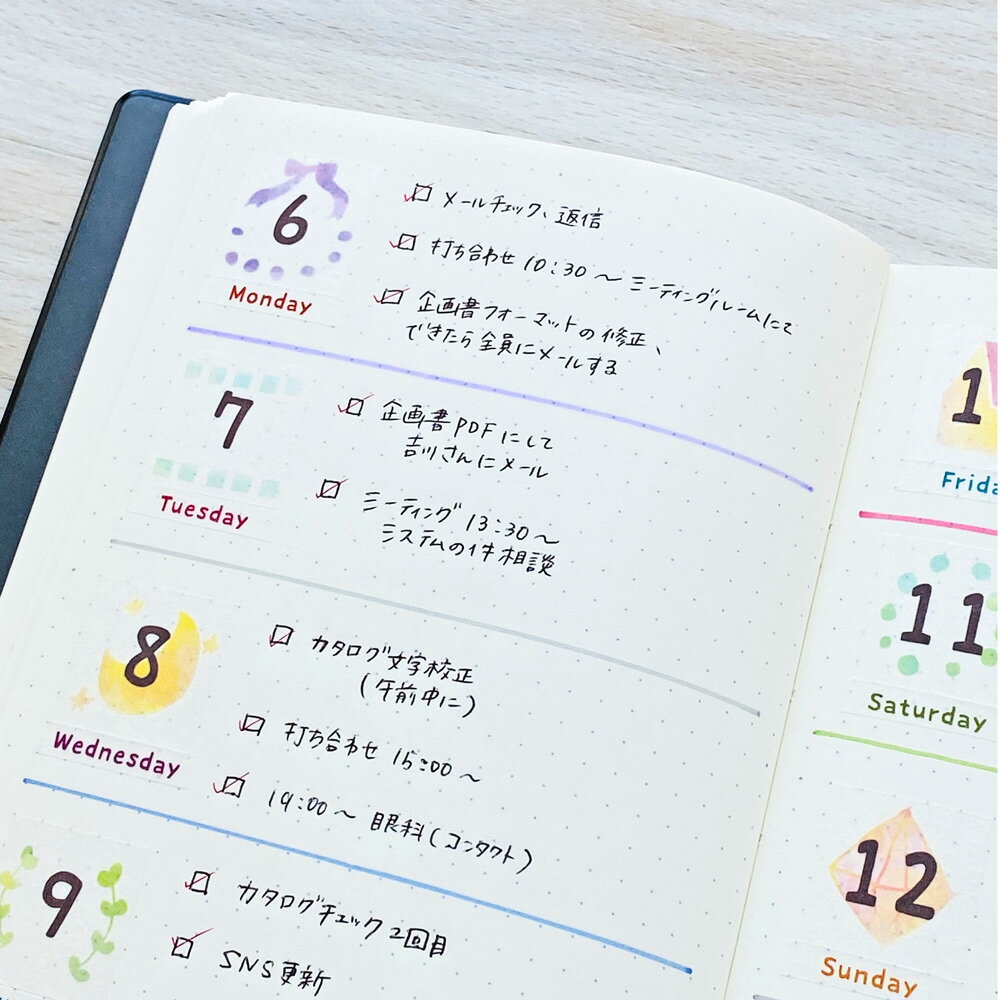 6
Monday
メールチェック、返信
打ち合わせ 10:30～ミーティングルームにて
企画書フォーマットの修正、
できたら全員にメールする
7
Tuesday
企画書PDFにして
吉川さんにメール
ミーティング 13:30～
システムの件相談
8
Wednesday
カタログ文字校正
(午前中に)
打ち合わせ 15:00～
19:00～ 眼科(コンタクト)
9
カタログチェック2回目
SNS更新
1
Frida
11
Saturday
12
Sunday